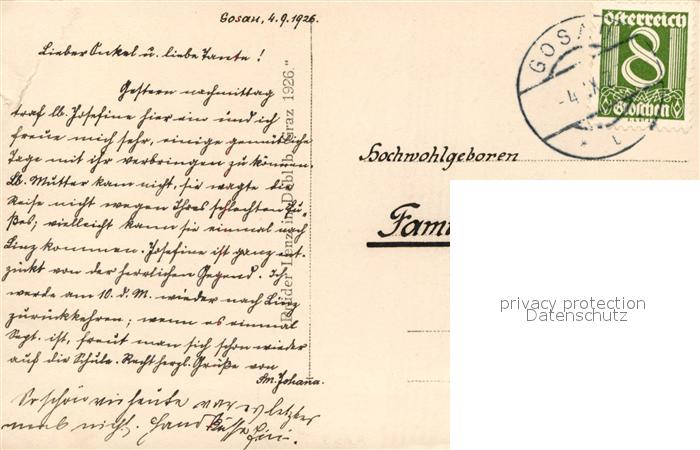 Gosau, 4.9.1926.
Lieber Onkel u. liebe Tante!
Gestern nachmittag
traf lb. Josefine hier ein und ich
freue mich sehr, einige gemütliche
Tage mit ihr verbringen zu können.
Lb. Mutter kam nicht, sie wagte die
Reise nicht wegen Ihres schlechten Fu-
ßes; vielleicht kann sie einmal nach
Linz kommen. Josefine ist ganz ent-
zückt von der herrlichen Gegend. Ich
werde am 10. d. M. wieder nach Linz
zurückkehren; wenn es einmal
Sept. ist, freut man sich schon wieder
auf die Schule. Recht herzl. Grüße von
Johanna.
So schön wie heute war es letztes
mal nicht. Handküsse Fini.
Brüder Lenz in Dobl b. Graz 1926."
österreich
8
Groschen
GOSAU
-4.IX.
Hochwohlgeboren
Fam
privacy protection
Datenschutz